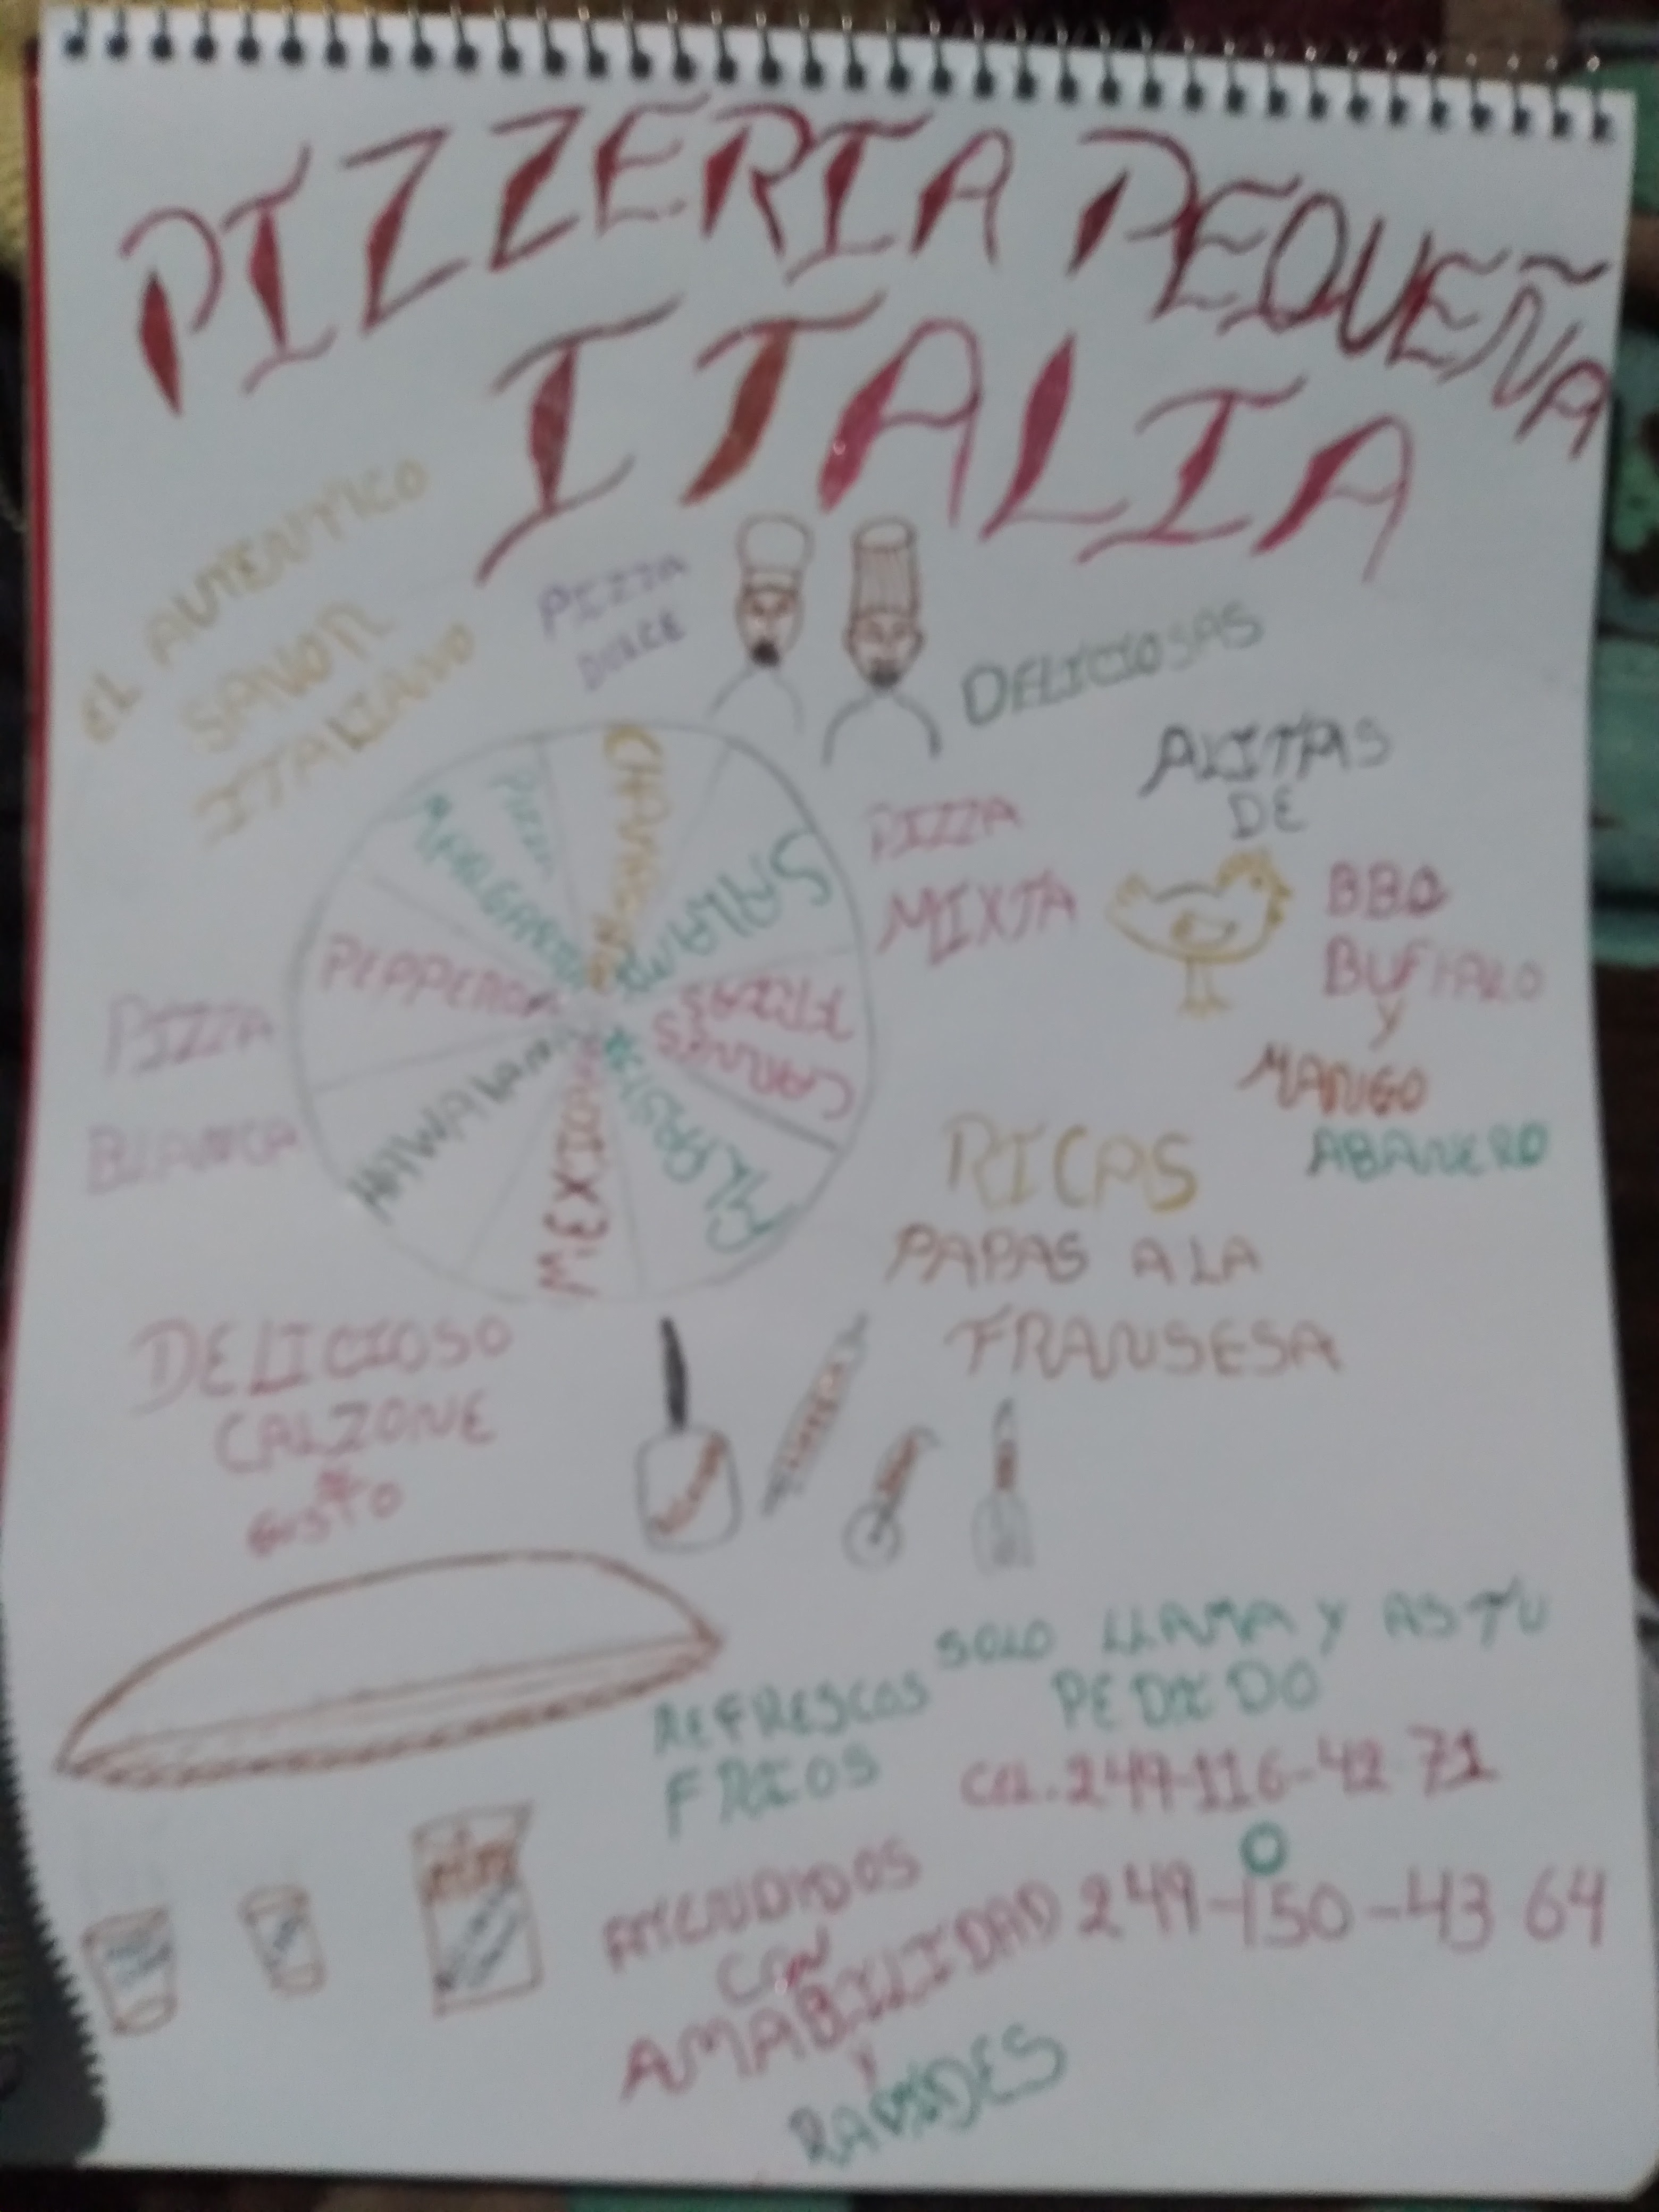 PIZZERIA PEQUEÑA
ITALIA
EL AUTENTICO
SAVOR
ITALIANO
PIZZA
DULCE
DELICIOSAS
ALITAS
DE
BBQ
BUFFALO
Y
MANGO
ABANERO
PIZZA
MIXTA
SALAMI
CARNES
FRIAS
MEXICANA
HAWAIANA
PEPPERONI
PIZZA
MARGARITA
PIZZA
BIANCA
RICAS
PAPAS A LA
FRANSESA
DELICIOSO
CALZONE
AL
GUSTO
SOLO LLAMA Y AS TU
PEDIDO
REFRESCOS
FRIOS
CEL. 249-116-42 71
O
249-150-43 64
ATENDIDOS
CON
AMABILIDAD
Y
RAPIDES